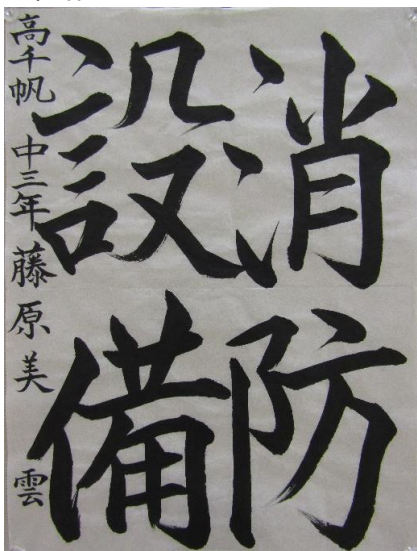 消防
設備
高千帆 中三年 藤原美雲